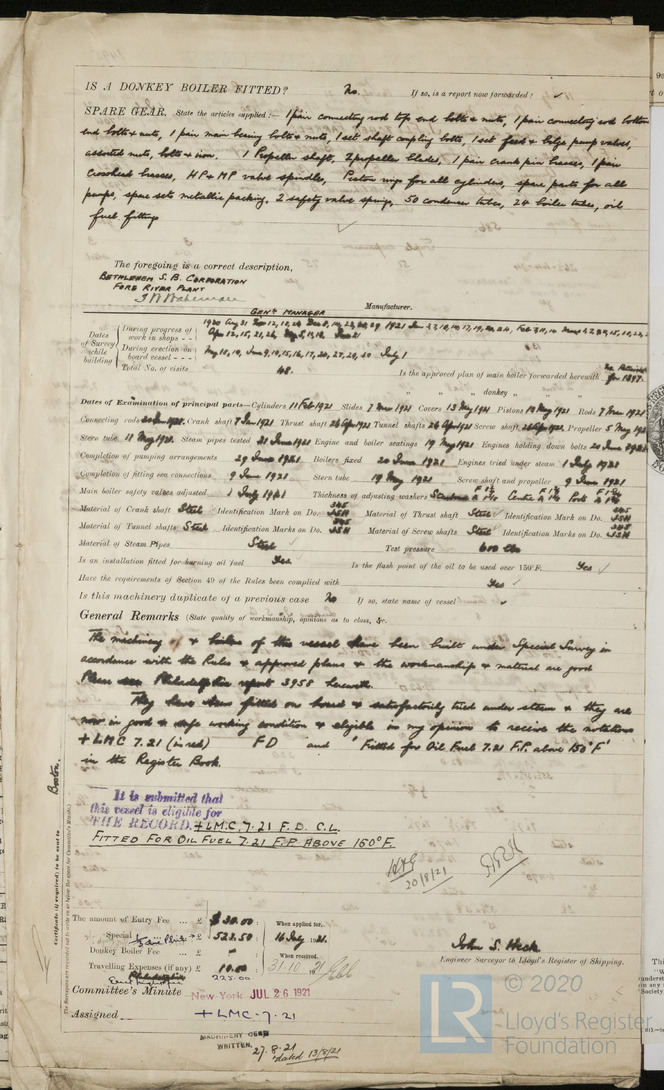 IS A DONKEY BOILER FITTED? No. If so, is a report now forwarded? ✓
SPARE GEAR. State the articles supplied:— 1 pair connecting rod top end bolts & nuts, 1 pair connecting rod bottom
end bolts & nuts, 1 pair main bearing bolts & nuts, 1 set shaft coupling bolts, 1 set feed & bilge pump valves,
assorted nuts, bolts & iron. 1 Propeller shaft, 2 propeller blades, 1 pair crank pin brasses, 1 pair
Crosshead brasses, HP & MP valve spindles, Piston rings for all cylinders, spare parts for all
pumps, spare sets metallic packing, 2 safety valve springs, 50 condenser tubes, 24 boiler tubes, oil
fuel fittings
The foregoing is a correct description,
BETHLEHEM S. B. CORPORATION
FORE RIVER PLANT
GENL MANAGER Manufacturer.
Dates of Survey while building
During progress of work in shops - - 1920 Aug 31 1921
During erection on board vessel - - - May 18, 19, June 9, 10, 15, 16, 17, 20, 27, 28, 30 July 1
Total No. of visits 48. Is the approved plan of main boiler forwarded herewith
" " " donkey " "
Dates of Examination of principal parts—Cylinders 11 Feb 1921 Slides 7 Mar 1921 Covers 13 May 1921 Pistons 18 May 1921 Rods 7 Mar 1921
Connecting rods Crank shaft 7 Jan 1921 Thrust shaft 26 Apl 1921 Tunnel shafts 26 Apl 1921 Screw shaft 26 Apl 1921 Propeller 5 May 1921
Stern tube 11 May 1921. Steam pipes tested 21 June 1921 Engine and boiler seatings 19 May 1921 Engines holding down bolts 20 June 1921
Completion of pumping arrangements 29 June 1921 Boilers fixed 20 June 1921 Engines tried under steam 1 July 1921
Completion of fitting sea connections 9 June 1921 Stern tube 19 May 1921 Screw shaft and propeller 9 June 1921
Main boiler safety valves adjusted 1 July 1921 Thickness of adjusting washers
Material of Crank shaft Steel Identification Mark on Do. 345 JSH Material of Thrust shaft Steel Identification Mark on Do. 345 JSH
Material of Tunnel shafts Steel Identification Marks on Do. 345 JSH Material of Screw shafts Steel Identification Marks on Do. 345 JSH
Material of Steam Pipes Steel ✓ Test pressure 600 lbs
Is an installation fitted for burning oil fuel Yes. Is the flash point of the oil to be used over 150°F. Yes ✓
Have the requirements of Section 49 of the Rules been complied with Yes ✓
Is this machinery duplicate of a previous case No If so, state name of vessel ✓
General Remarks (State quality of workmanship, opinions as to class, &c.
The machinery & boilers of this vessel have been built under Special Survey in
accordance with the Rules & approved plans & the workmanship & material are good
Please see Philadelphia report 3958 herewith.
They have been fitted on board & satisfactorily tried under steam & they are
now in good & safe working condition & eligible in my opinion to receive the notations
+ LMC 7.21 (in red) FD and 'Fitted for Oil Fuel 7.21 F.P. above 150°F'
in the Register Book.
It is submitted that
this vessel is eligible for
THE RECORD. + LMC. 7.21 F.D. C.L.
FITTED FOR OIL FUEL 7.21 F.P. ABOVE 150°F.
20/8/21
Certificate (if required) to be sent to Boston.
The amount of Entry Fee ... £ $ 30.00 : When applied for,
Special ... £ 522.50 : 16 July 1921.
Donkey Boiler Fee ... £ – : When received,
Travelling Expenses (if any) £ 10.00 : 31.10.21
225.00
John S. Heck
Engineer Surveyor to Lloyd's Register of Shipping.
Committee's Minute New York JUL 26 1921
Assigned + LMC. 7. 21
MACHINERY CERT
WRITTEN. 27.8.21
dated 13/8/21
© 2020
LR Lloyd's Register
Foundation